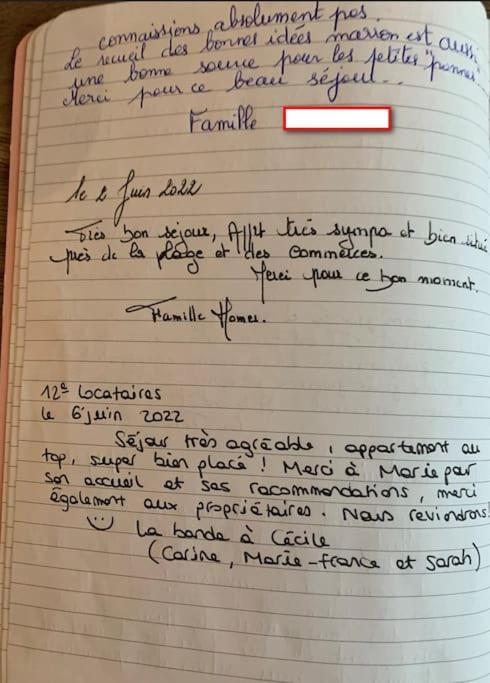 connaissions absolument pas.
Le recueil des bonnes idées maison est aussi
une bonne source pour les petites "pannes"
Merci pour ce beau séjour...
Famille
le 2 Juin 2022
Très bon séjour, APPt très sympa et bien situé
près de la plage et des commerces.
Merci pour ce bon moment.
Famille Homes.
12e locataires
le 6 juin 2022
Séjour très agréable, appartement au
top, super bien placé ! Merci à Marie par
son accueil et ses recommandations, merci
également aux propriétaires. Nous reviendrons!
La bande à Cécile
(Carine, Marie-france et Sarah)